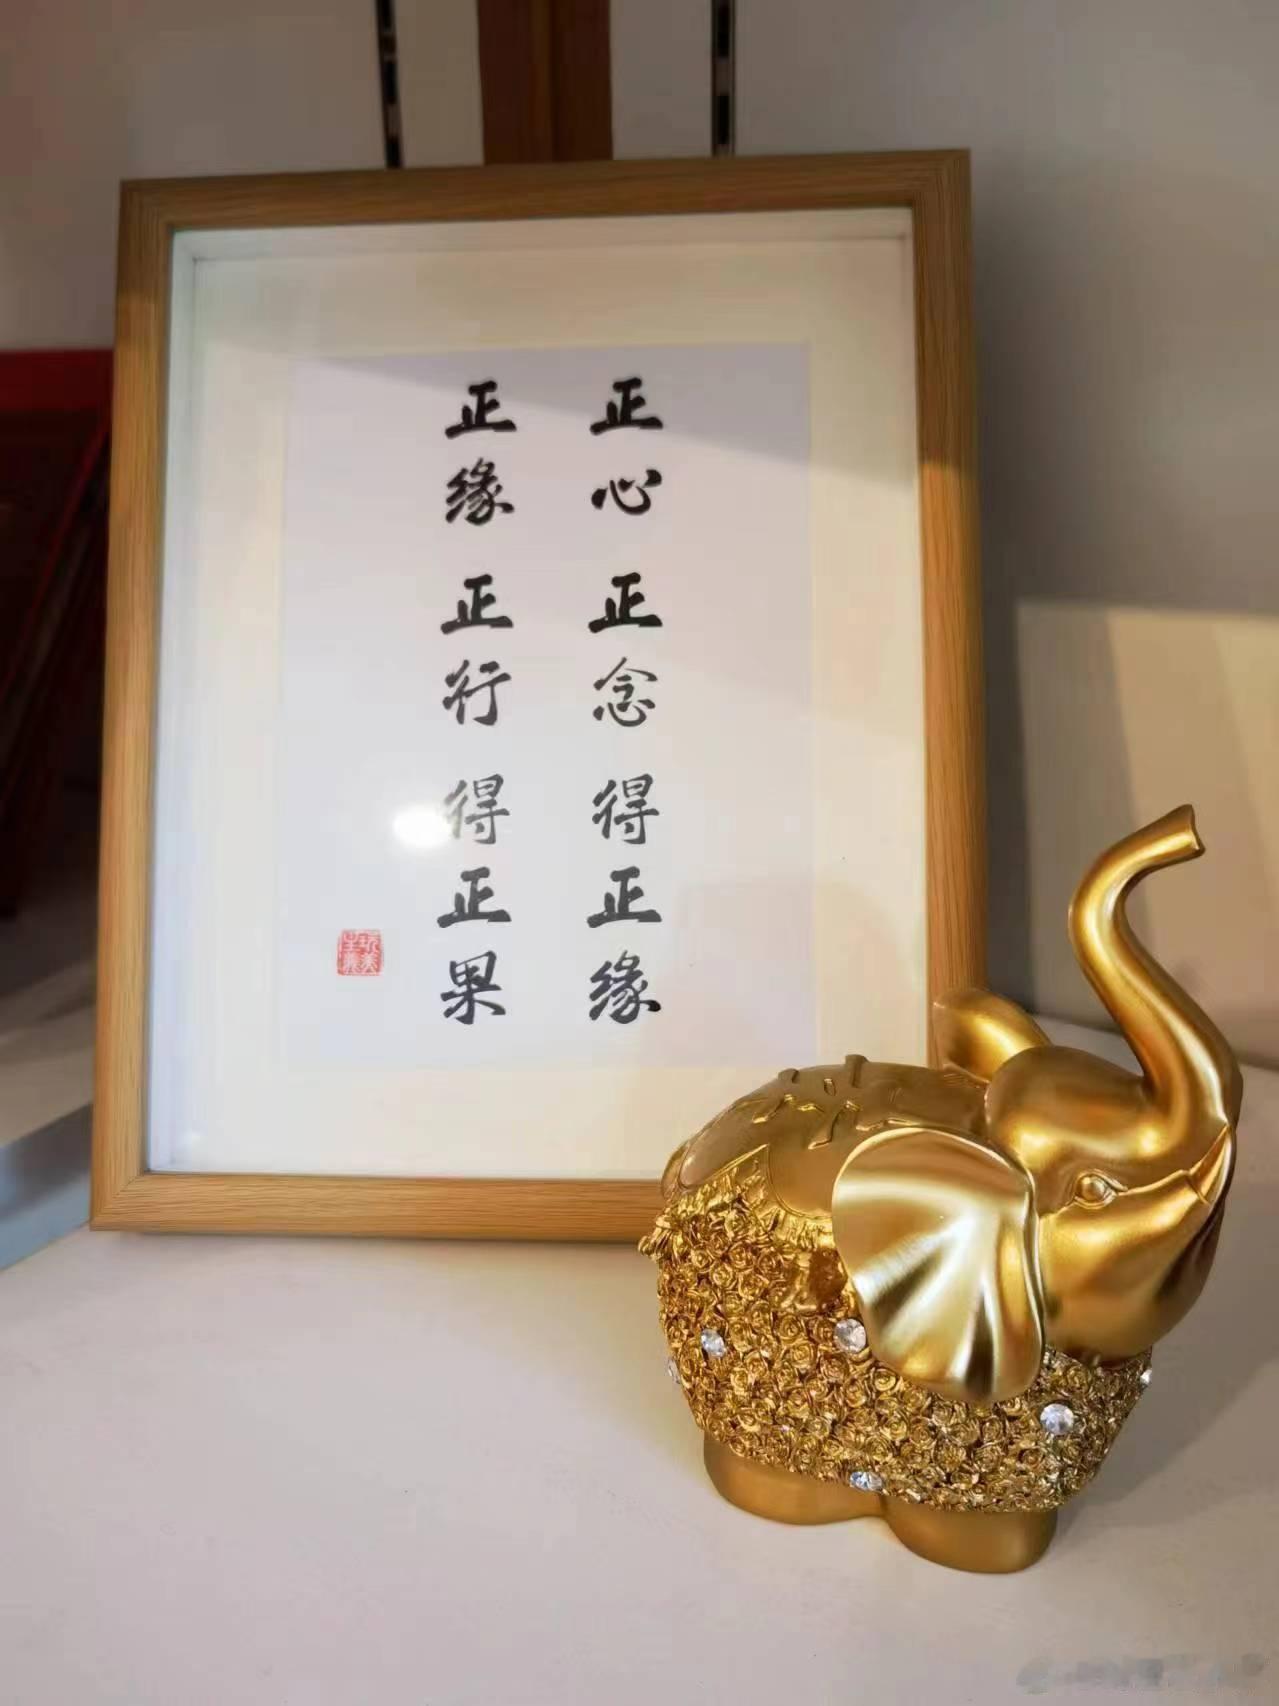 正心 正念 得正缘
正缘 正行 得正果